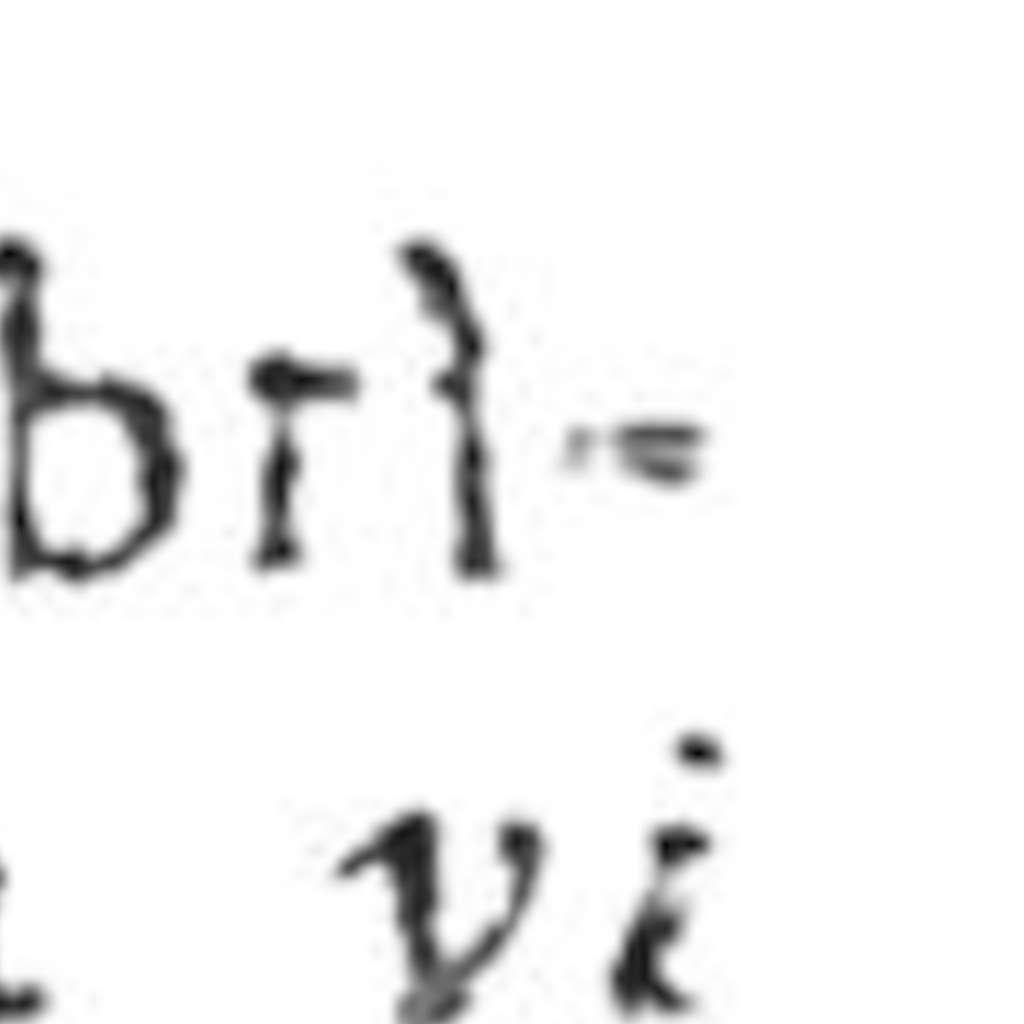 bri-
vi